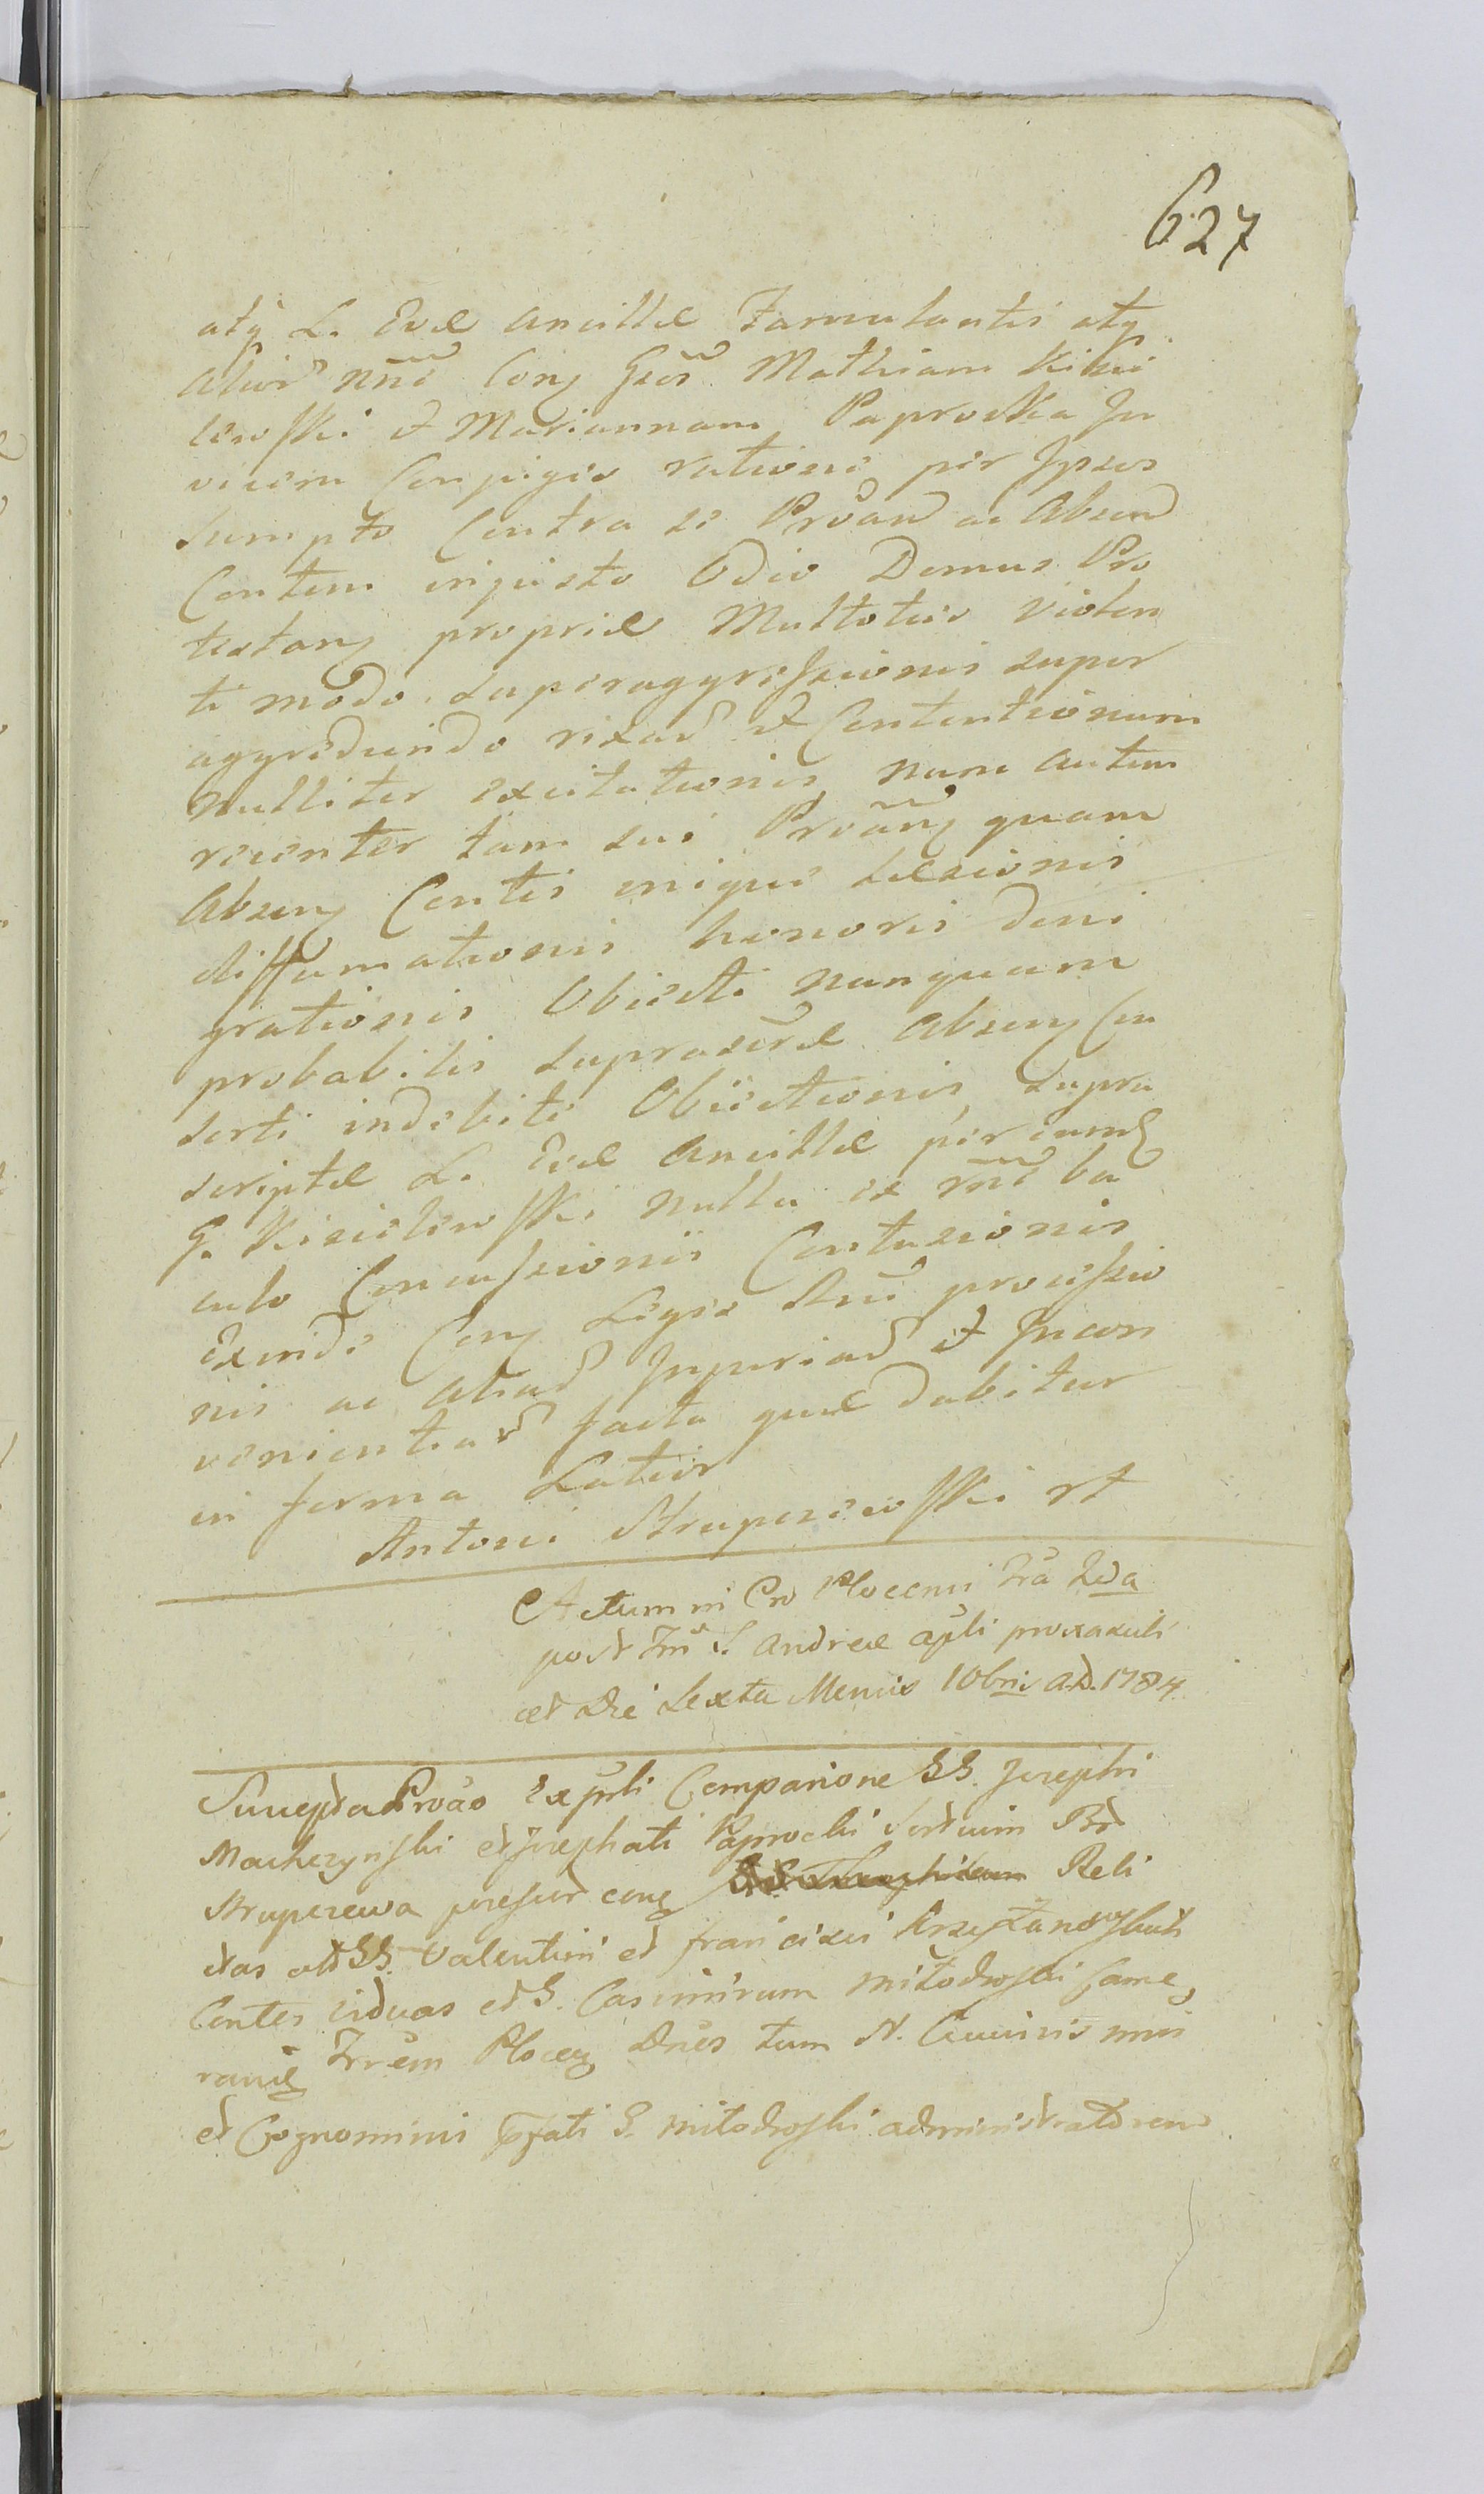 627
atq L. Evæ Ancillæ Famulantis atq
Alior nne Conq Gsos Mathiam Kisie
lewski et Mariannam Paprocka In
vicem Conjuges ratione per Ipsos
Sumpto Contra se Proan ac Absen
Contem injusto Odio Domus Pro
testanq propriæ Multoties violen
ti modo Superaggressionis super
aggrediendo rixar et Contentionum
Nulliter excitationis, nunc autem
recenter tam sui Proanq quam
Absenq Contis inique Læsionis
diffamationis honoris deni
grationis Obiecti nunquam
probabilis suprascræ Absenq Con
sorti indebite Obiectionis, supra
scriptæ L. Evæ Ancillæ per eumd
G. Kisielewski nulla ex rne ba
culo Concussionis Contusionis
Exinde Conq Legis Stui processio
nis ac Aliar Injuriar et Incon
venientiar facta quæ dabitur
in forma Latior
Antoni Strupczewski rt
Actum in Cro Plocensi Fra 2da
post Fm S. Andreæ apli prox
et Die Sexta Mensis 10bris A.D. 1784
Suscepta Proao ex pnti Comparione GG. Josephi
Machczynski et Josephati Paprocki Sortium Bd
Strupczewa possessor conq Reli
ctas olt GG. Valentini et Francisci Krzyżanowskich
Contes viduas et G. Casimirum Mitodroski Came
rarie Trrem Plocen Dnos tum N. Civis nnis
et Cognominis pfati G. Mitodroski administratorem